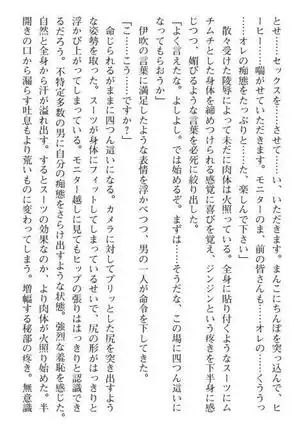 とせ……セックスを……させて……い、いただきます。まんこにちんぽを突っ込んで、ヒ
ーヒー……喘がせていただきます。モニターのまえ、前の皆さんも……オレの……くううっ
……オレの痴態をたっぷりと……た、楽しんで下さい」
　散々受けた陵辱によって未だに肉体は火照っている。全身に貼り付くようなスーツにム
チムチとした身体を締めつけられる感覚に喜びを覚え、ジンジンという疼きを下半身に感
じつつ、媚びるような言葉を必死に絞り出した。
「よく言えたな。よしよし。では始めるぞ。まずは……そうだな、この場に四つん這いに
なってもらおうか」
　伊吹の言葉に満足したような表情を浮かべつつ、男の一人が命令を下してきた。
「こ……こう……ですか？」
　命じられるがままに四つん這いになる。カメラに対してプリッとした尻を突き出すよう
な姿勢を取った。スーツが身体にフィットしてしまっているせいで、尻の形がはっきりと
浮かび上がってしまっている。モニター越しに見てもヒップの張りははっきりと認識でき
るだろう。不特定多数の男に自分の痴態をさらけ出すような状態。強烈な羞恥を感じた。
自然と全身から汗が溢れ出す。するとスーツの効果なのか、より肉体が火照り始めた。半
開きの口から漏らす吐息もより荒いものに変わってしまう。増幅する秘部の疼き。無意識